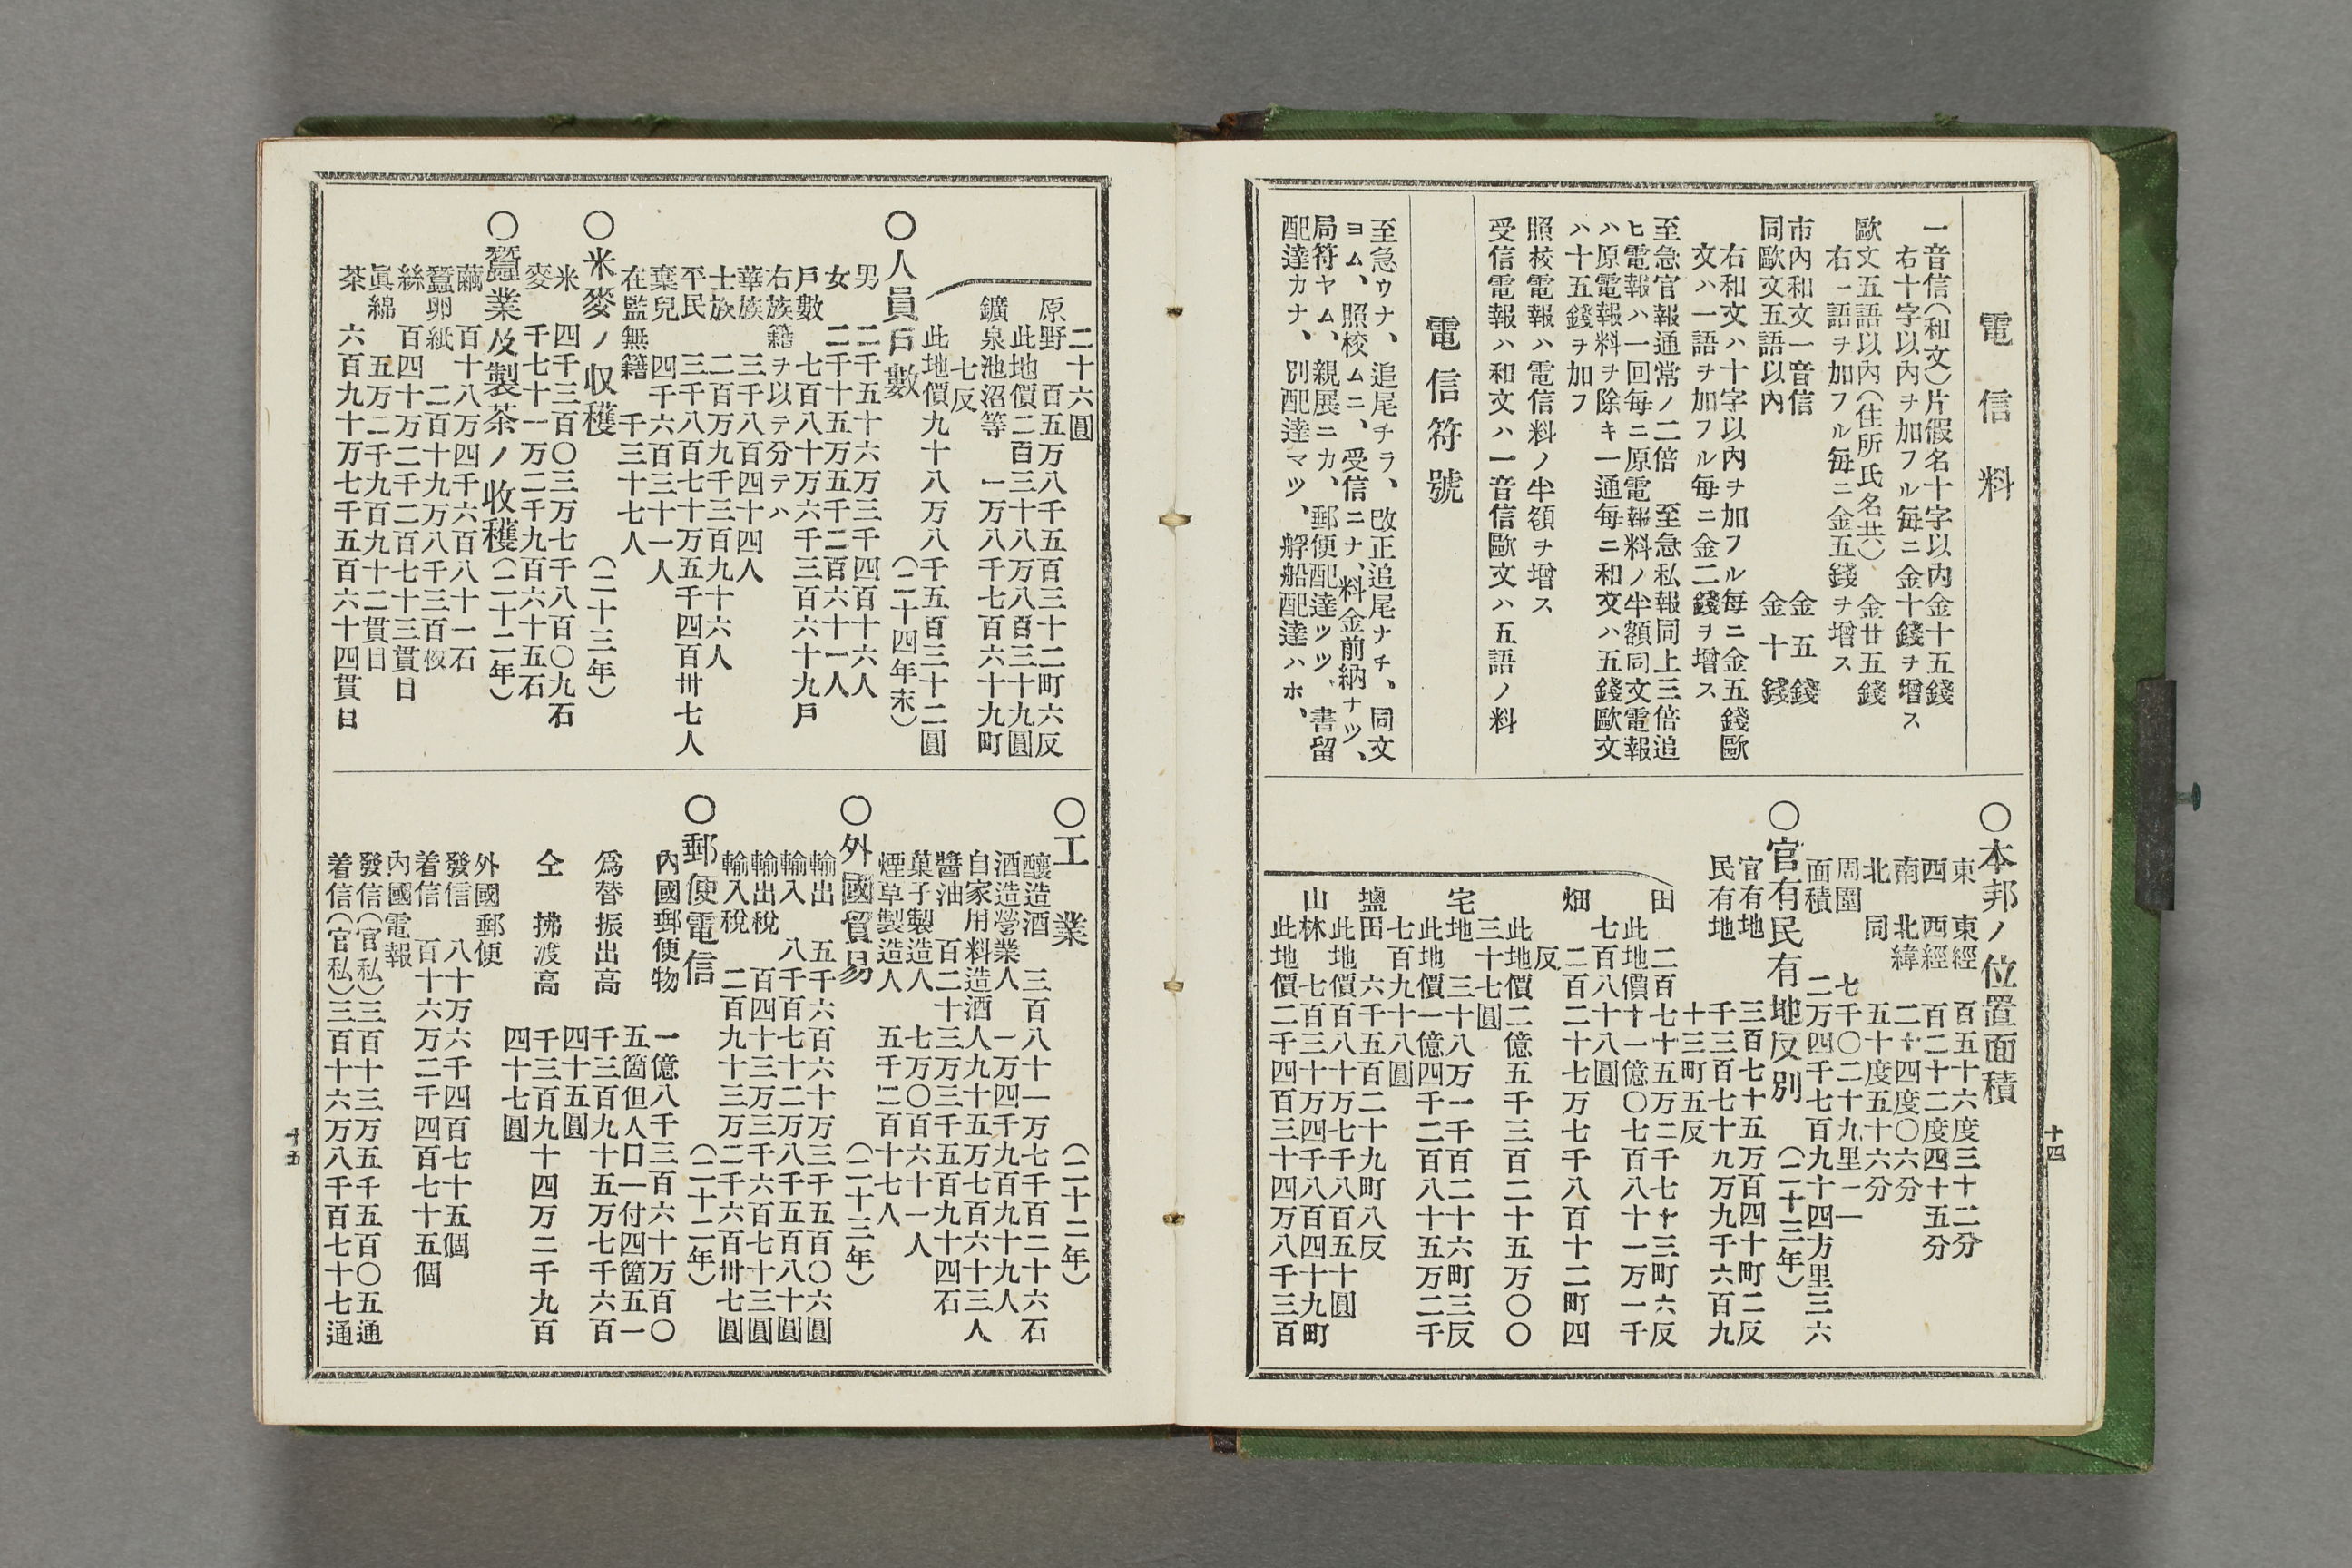 電信料
一音信(和文)片假名十字以內金十五錢
右十字以內ヲ加フル每ニ金十錢ヲ增ス
歐文五語以內(住所氏名共) 金廿五錢
右一語ヲ加フル每ニ金五錢ヲ增ス
市內和文一音信 金五錢
同歐文五語以內 金十錢
右和文ハ十字以內ヲ加フル每ニ金五錢歐
文ハ一語ヲ加フル每ニ金二錢ヲ增ス
至急官報通常ノ二倍 至急私報同上三倍追
ヒ電報ハ一回每ニ原電報料ノ半額同文電報
ハ原電報料ヲ除キ一通每ニ和文ハ五錢歐文
ハ十五錢ヲ加フ
照校電報ハ電信料ノ半額ヲ增ス
受信電報ハ和文ハ一音信歐文ハ五語ノ料
電信符號
至急ウナ、追尾チラ、改正追尾ナチ、同文
ヨム、照校ムニ、受信ニナ、料金前納ナツ、
局符ヤム、親展ニカ、郵便配達ツツ、書留
配達カナ、別配達マツ、艀船配達ハホ、
〇本邦ノ位置面積
東 東經 百五十六度三十二分
西 西經 百二十二度四十五分
南 北緯 二十四度〇六分
北 同 五十度五十六分
周圍 七千〇二十九里一一
面積 二万四千七百九十四方里三六
〇官有民有地反別 (二十三年)
官有地 三百七十五万百四十町二反
民有地 千三百七十九万九千六百九
十三町五反
田 二百七十五万二千七十三町六反
此地價十一億〇七百八十一万一千
七百八十八圓
畑 二百二十七万七千八百十二町四
反
此地價二億五千三百二十五万〇〇
三十七圓
宅地 三十八万一千百二十六町三反
此地價一億四千二百八十五万二千
七百九十八圓
鹽田 六千五百二十九町八反
此地價百八十万七千八百五十圓
山林 七百三十万四千八百四十九町
此地價二千四百三十四万八千三百
十四
二十六圓
原野 百五万八千五百三十二町六反
此地價二百三十八万八百三十九圓
鑛泉池沼等 一万八千七百六十九町
七反
此地價九十八万八千五百三十二圓
〇人員戶數 (二十四年末)
男 二千五十六万三千四百十六人
女 二千十五万五千二百六十一人
戶數 七百八十万六千三百六十九戶
右族籍ヲ以テ分テハ
華族 三千八百四十四人
士族 二百万九千三百九十六人
平民 三千八百七十万五千四百卅七人
棄兒 四千六百三十一人
在監無籍 千三十七人
〇米麥ノ収穫 (二十三年)
米 四千三百〇三万七千八百〇九石
麥 千七十一万二千九百六十五石
〇蠶業及製茶ノ收穫(二十二年)
繭 百十八万四千六百八十一石
蠶卵紙 二百十九万八千三百枚
絲 百四十万二千二百七十三貫目
眞綿 五万二千九百九十二貫目
茶 六百九十万七千五百六十四貫目
〇工業 (二十二年)
釀造酒 三百八十一万七千百二十六石
酒造營業人 一万四千九百九十九人
自家用料造酒人九十五万七百六十三人
醬油 百二十三万三千五百九十四石
菓子製造人 七万〇百六十一人
煙草製造人 五千二百十七人
〇外國貿易 (二十三年)
輸出 五千六百六十万三千五百〇六圓
輸入 八千百七十二万八千五百八十圓
輸出稅 百四十三万三千六百七十三圓
輸入稅 二百九十三万二千六百卅七圓
〇郵便電信 (二十二年)
內國郵便物 一億八千三百六十万百〇
五箇但人口一付四箇五一
爲替振出高 千三百九十五万七千六百
四十五圓
仝 拂渡高 千三百九十四万二千九百
四十七圓
外國郵便
發信 八十万六千四百七十五個
着信 百十六万二千四百七十五個
內國電報
發信(官私)三百十三万五千五百〇五通
着信(官私)三百十六万八千百七十七通
十五